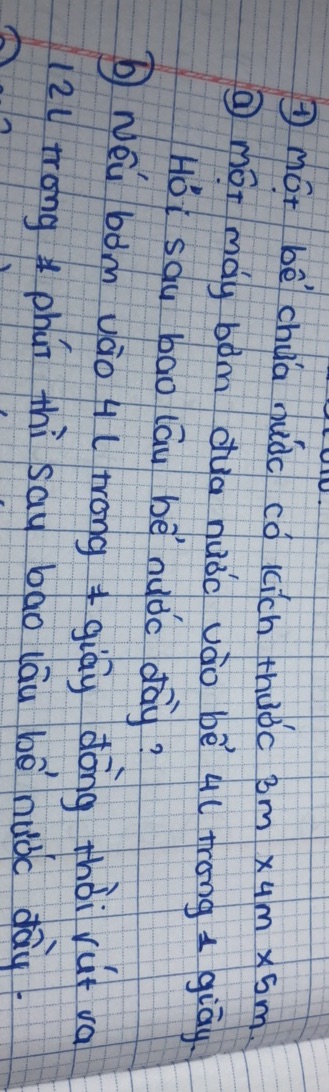 1) một bể chứa nước có kích thước 3m x 4m x 5m.
a) một máy bơm đưa nước vào bể 4l trong 1 giây.
Hỏi sau bao lâu bể nước đầy?
b) Nếu bơm vào 4l trong 1 giây đồng thời rút ra
12l trong 1 phút thì sau bao lâu bể nước đầy.